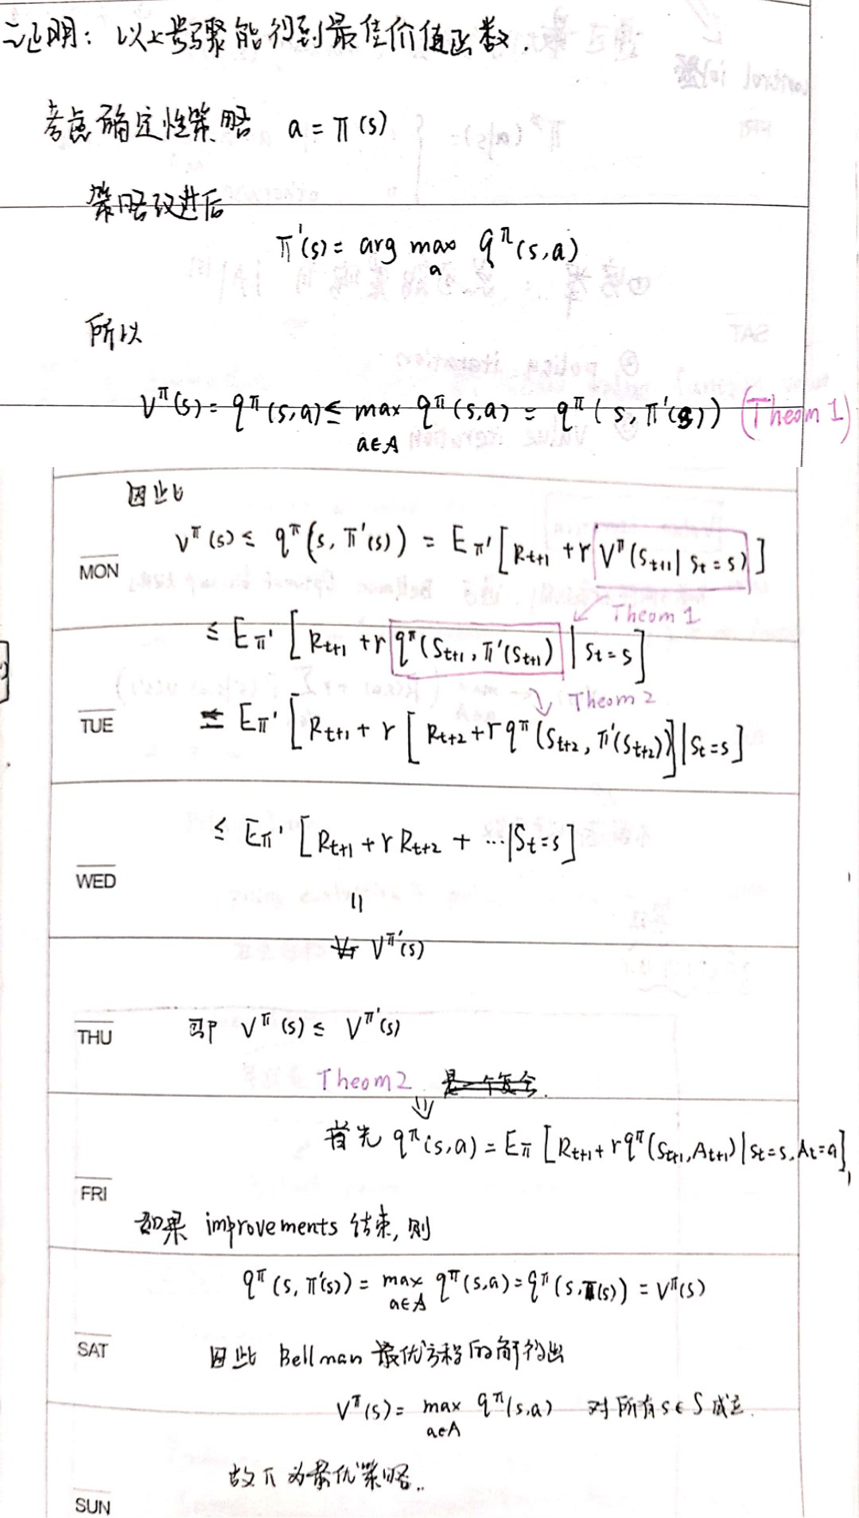 证明: 以上步骤能得到最佳价值函数.
考虑确定性策略 a = π(s)
策略改进后
π'(s) = arg max_a q^π(s,a)
所以
V^π(s) = q^π(s,a) ≤ max_{a∈A} q^π(s,a) = q^π(s, π'(s)) (Theom 1)
因此
MON V^π(s) ≤ q^π(s, π'(s)) = E_π' [R_{t+1} + r V^π(S_{t+1} | S_t = s)]
Theom 1
≤ E_π' [R_{t+1} + r q^π(S_{t+1}, π'(S_{t+1})) | S_t = s]
Theom 2
TUE ≤ E_π' [R_{t+1} + r [R_{t+2} + r q^π(S_{t+2}, π'(S_{t+2}))] | S_t = s]
≤ E_π' [R_{t+1} + r R_{t+2} + ... | S_t = s]
WED
=
V^π'(s)
THU 即 V^π(s) ≤ V^π'(s)
Theom 2
⇓
首先 q^π(s,a) = E_π [R_{t+1} + r q^π(S_{t+1}, A_{t+1}) | S_t = s, A_t = a]
FRI
如果 improvements 结束, 则
q^π(s, π'(s)) = max_{a∈A} q^π(s,a) = q^π(s, π(s)) = V^π(s)
SAT 因此 Bellman 最优方程的解得出
V^π(s) = max_{a∈A} q^π(s,a) 对所有 s∈S 成立.
故π为最优策略..
SUN